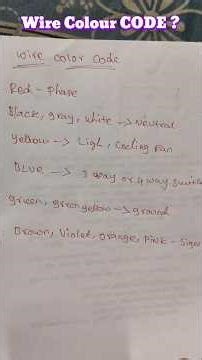 Wire Colour CODE ?
Wire color code
Red - Phase
Black, gray, white -> Neutral
Yellow -> Ligh, Ceeling Fan
BLUE -> 3 way or 4 way switch
green, green yellow -> ground
Brown, Violet, orange, Pink - Signa